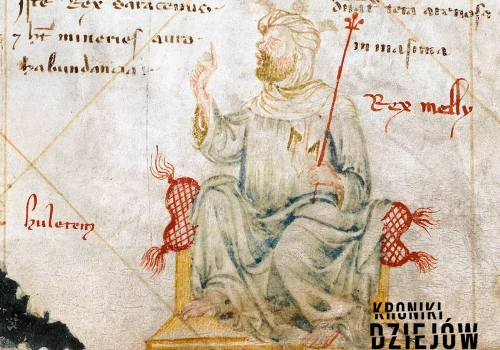 iste Rex saracenus
mineries auro
habundancia
tera arenosa
in
Rex melly
huletem
KRONIKI
DZIEJÓW